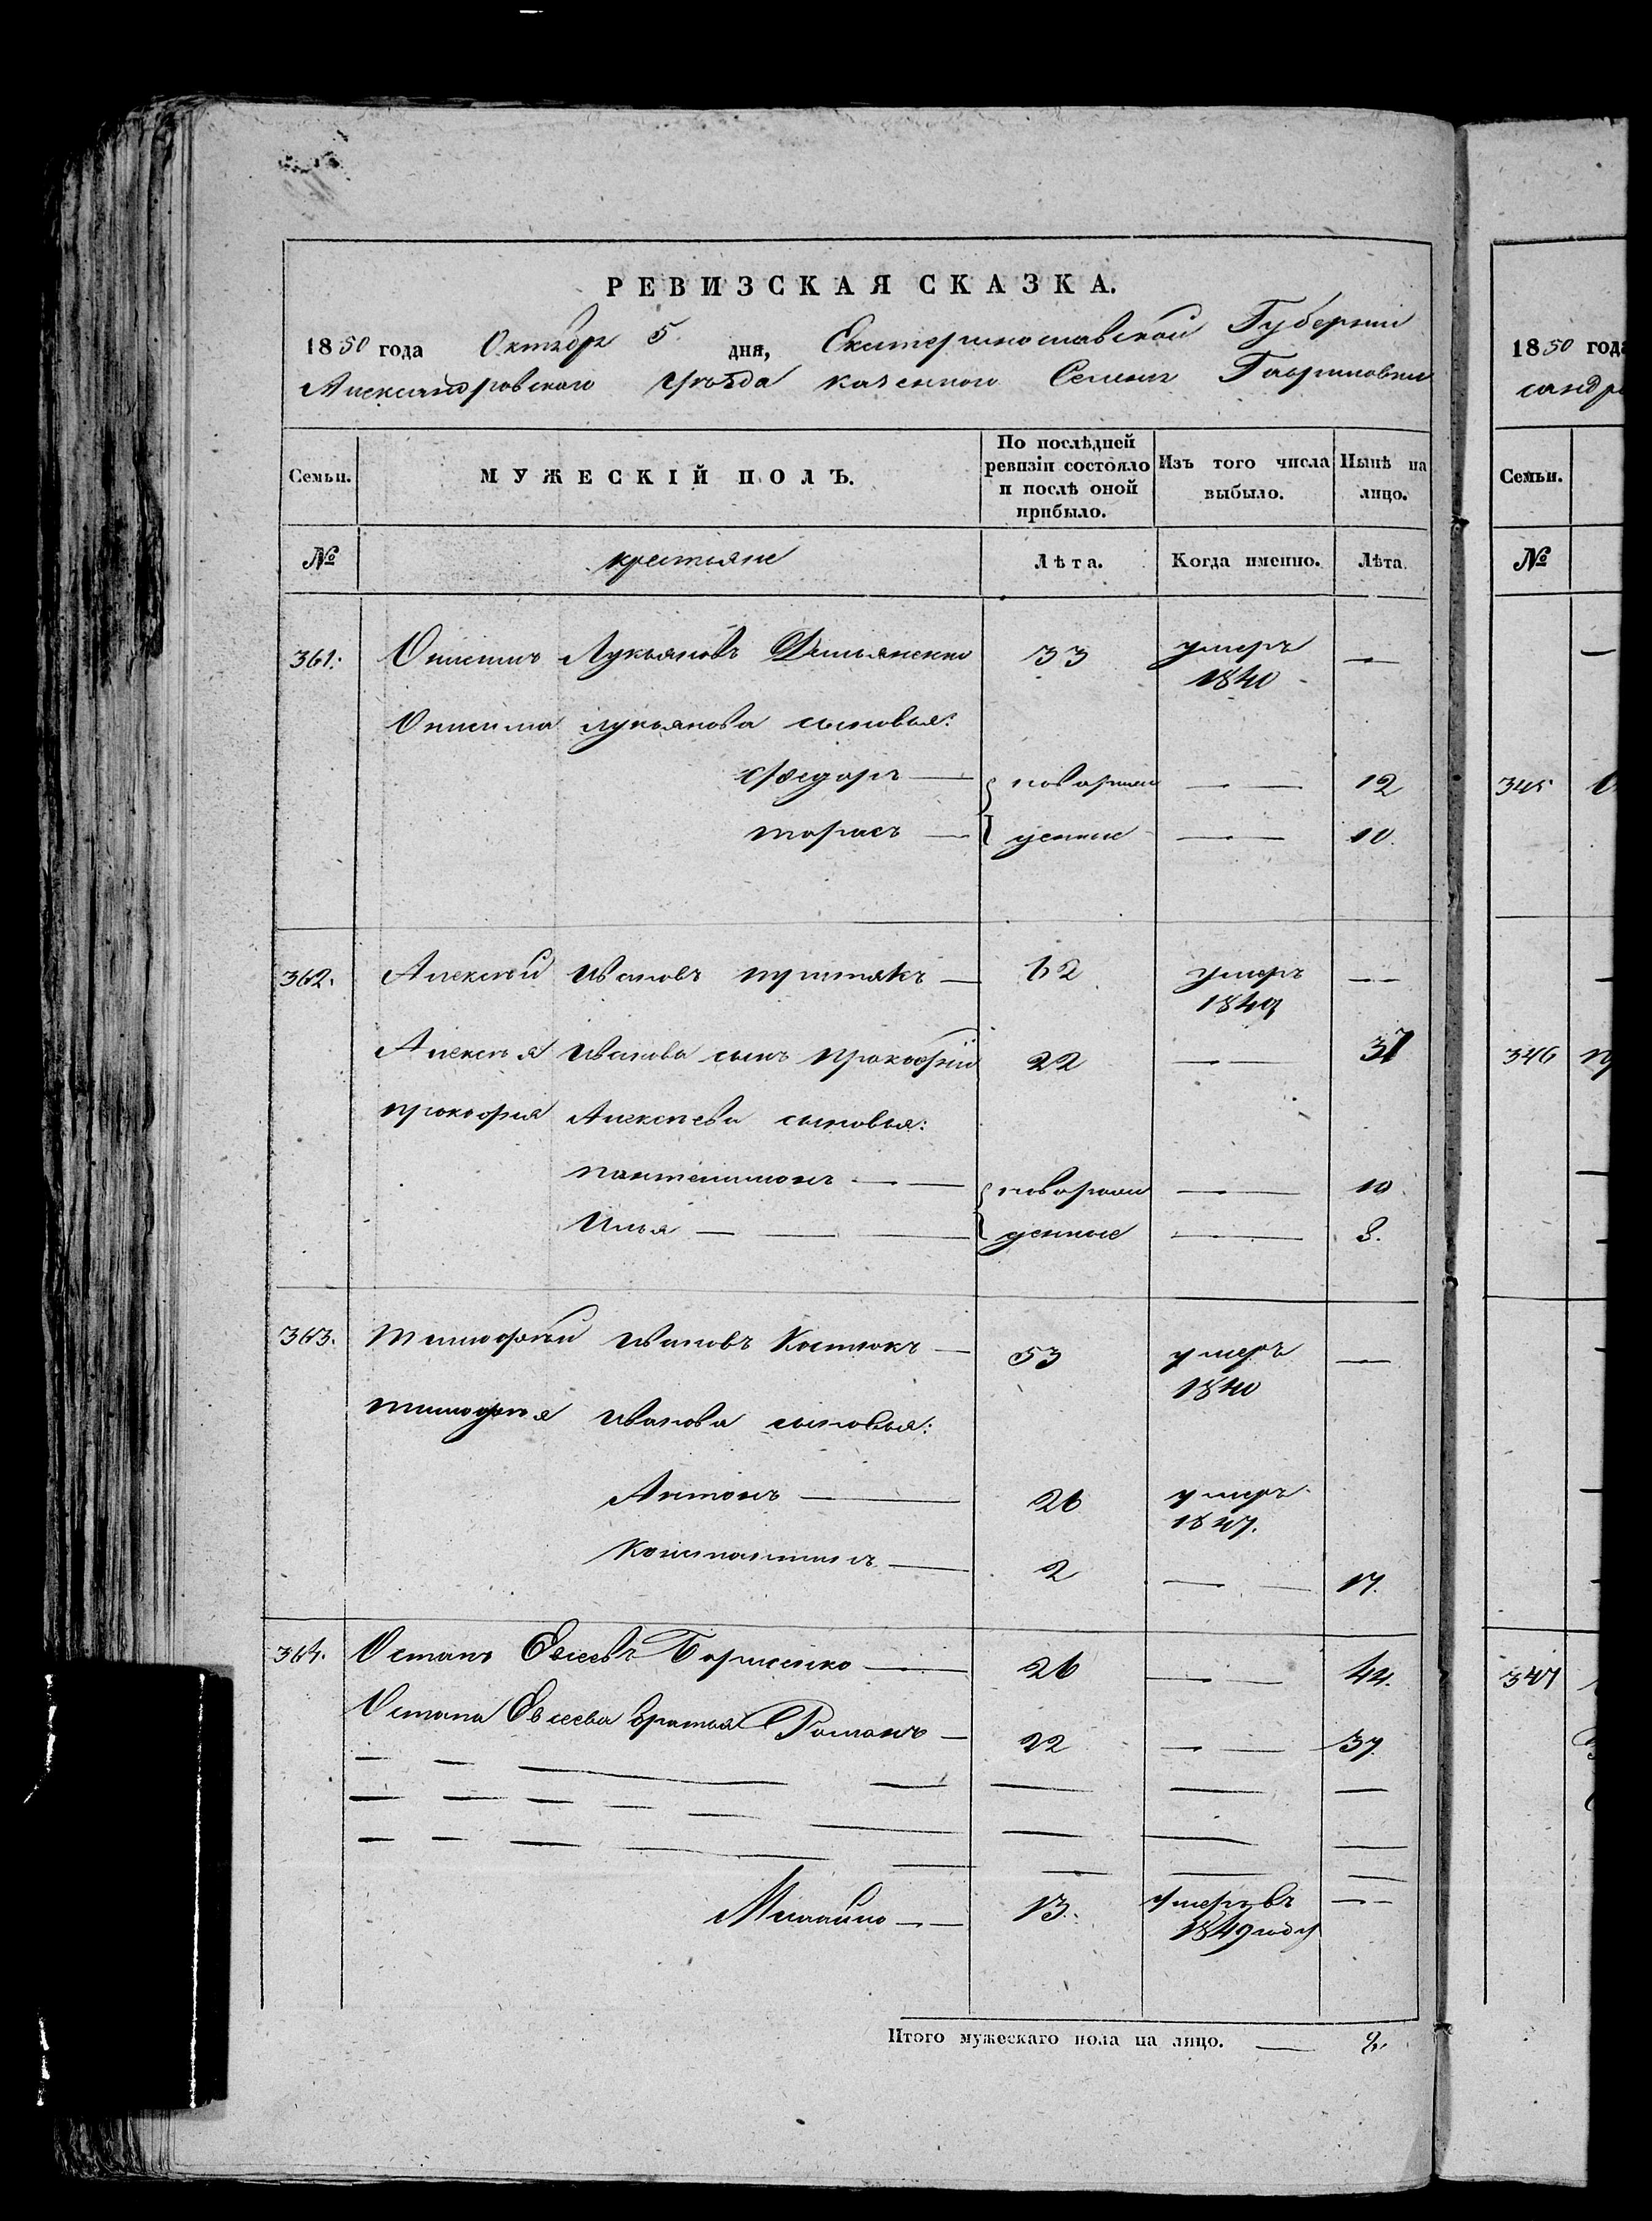 РЕВИЗСКАЯ СКАЗКА.
1850 года Октября 5 дня, Екатеринославской Губернии
Александровского уѣзда казенного Селения Гавриловки
Семьи. МУЖЕСКІЙ ПОЛЪ. По послѣдней ревизіи состояло и послѣ оной прибыло. Изъ того числа выбыло. Нынѣ на лицо.
№ крестьяне Лѣта. Когда именно. Лѣта.
361. Онисимъ Лукьяновъ Демьяненко 33 умеръ 1840 —
Онисима Лукьянова сыновья:
Федоръ — новорож — — 12
Тарасъ — денные — — 10.
362. Алексѣй Ивановъ — 62 умеръ 1849 — —
Алексѣя Иванова сынъ Прокофій 22 — — 37
Прокофия Алексѣева сыновья:
Пантелимонъ — — новорож — — 10.
Илья — — — денные — — 8.
363. Тимофѣй Ивановъ Костюкъ — 53 умеръ 1840 —
Тимофѣя Иванова сыновья:
Антонъ — 26 умеръ 1847.
Константинъ — 2 — — 17.
364. Остапъ Евсеевъ Борисенко — 26 — — 44.
Остапа Евсеева братья Романъ — 22 — — 37.
Михайло — — 13. умеръ въ 1849 году — —
Итого мужескаго пола на лицо. — 8.
1850 года
сандро
Семьи.
№
345
346
347